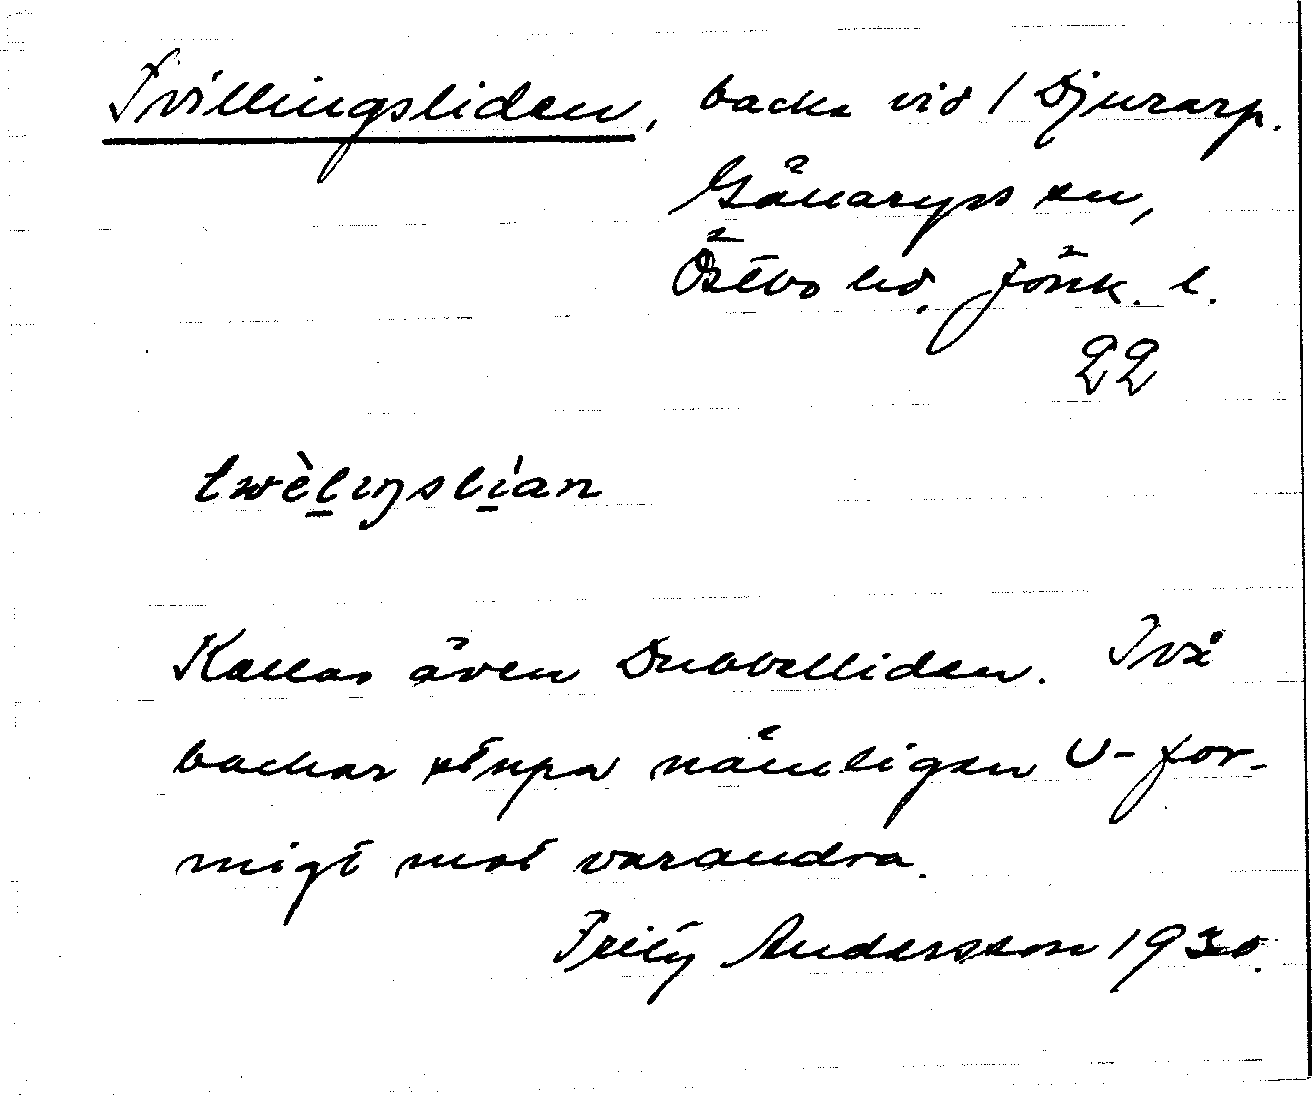 Tvillingsliden, backe vid 1 Djurarp.
Gällaryds sn,
Östbo hd, Jönk. l.
22
twèlıŋslían
Kallas även Dubbelliden. Två
backar stupa nämligen U-for-
migt mot varandra.
Fritz Andersson 1930.